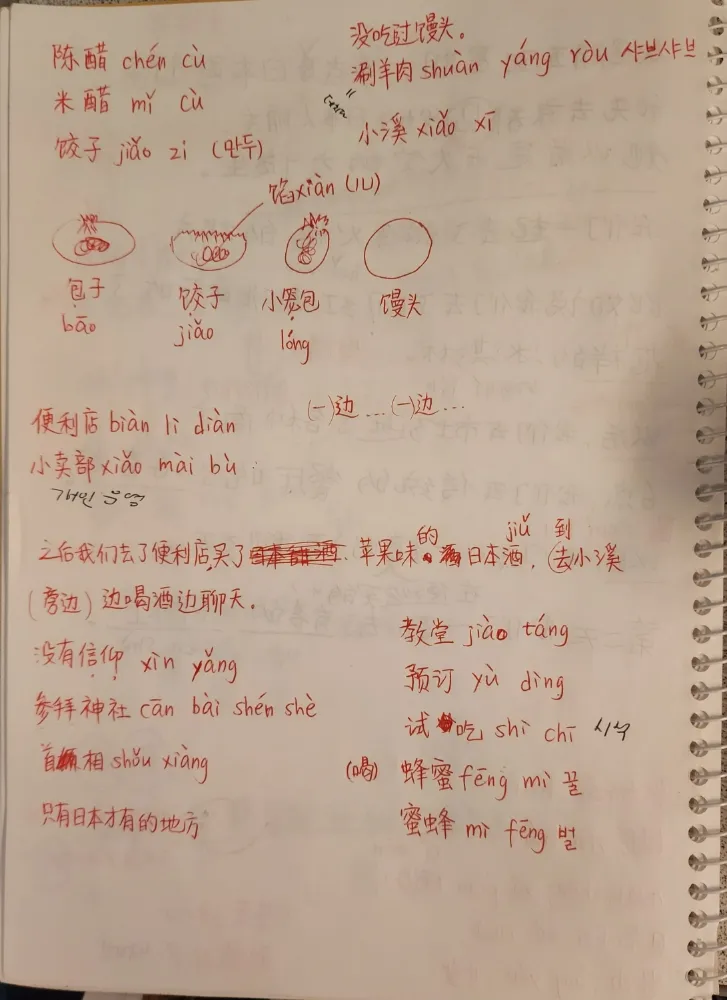 没吃过馒头。
陈醋 chén cù
涮羊肉 shuàn yáng ròu 샤브샤브
米醋 mǐ cù
小溪 xiǎo xī
饺子 jiǎo zi (만두)
馅 xiàn (니)
包子 饺子 小笼包 馒头
bāo jiǎo lóng
(一)边...(一)边...
便利店 biàn lì diàn
小卖部 xiǎo mài bù
개인 운영
之后我们去了便利店,买了 苹果味的日本酒, 去小溪
jiǔ 到
(旁边) 边喝酒边聊天。
教堂 jiào táng
没有信仰 xìn yǎng
预订 yù dìng
参拜神社 cān bài shén shè
试吃 shì chī 시식
首相 shǒu xiàng
(喝) 蜂蜜 fēng mì 꿀
只有日本才有的地方
蜜蜂 mì fēng 벌